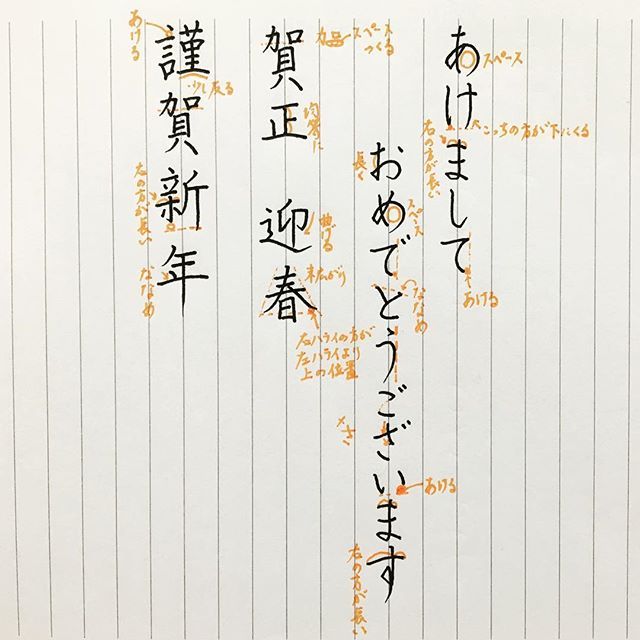 あけまして
スペース
こっちの方が下にくる
右の方が長い
あける
おめでとうございます
長く
スペース
ななめ
さ
あける
右の方が長い
賀正 迎春
カ
スペース
つくる
均等に
曲げる
末広がり
右ハライの方が
左ハライより
上の位置
謹賀新年
あける
少し反る
右の方が長い
ななめ